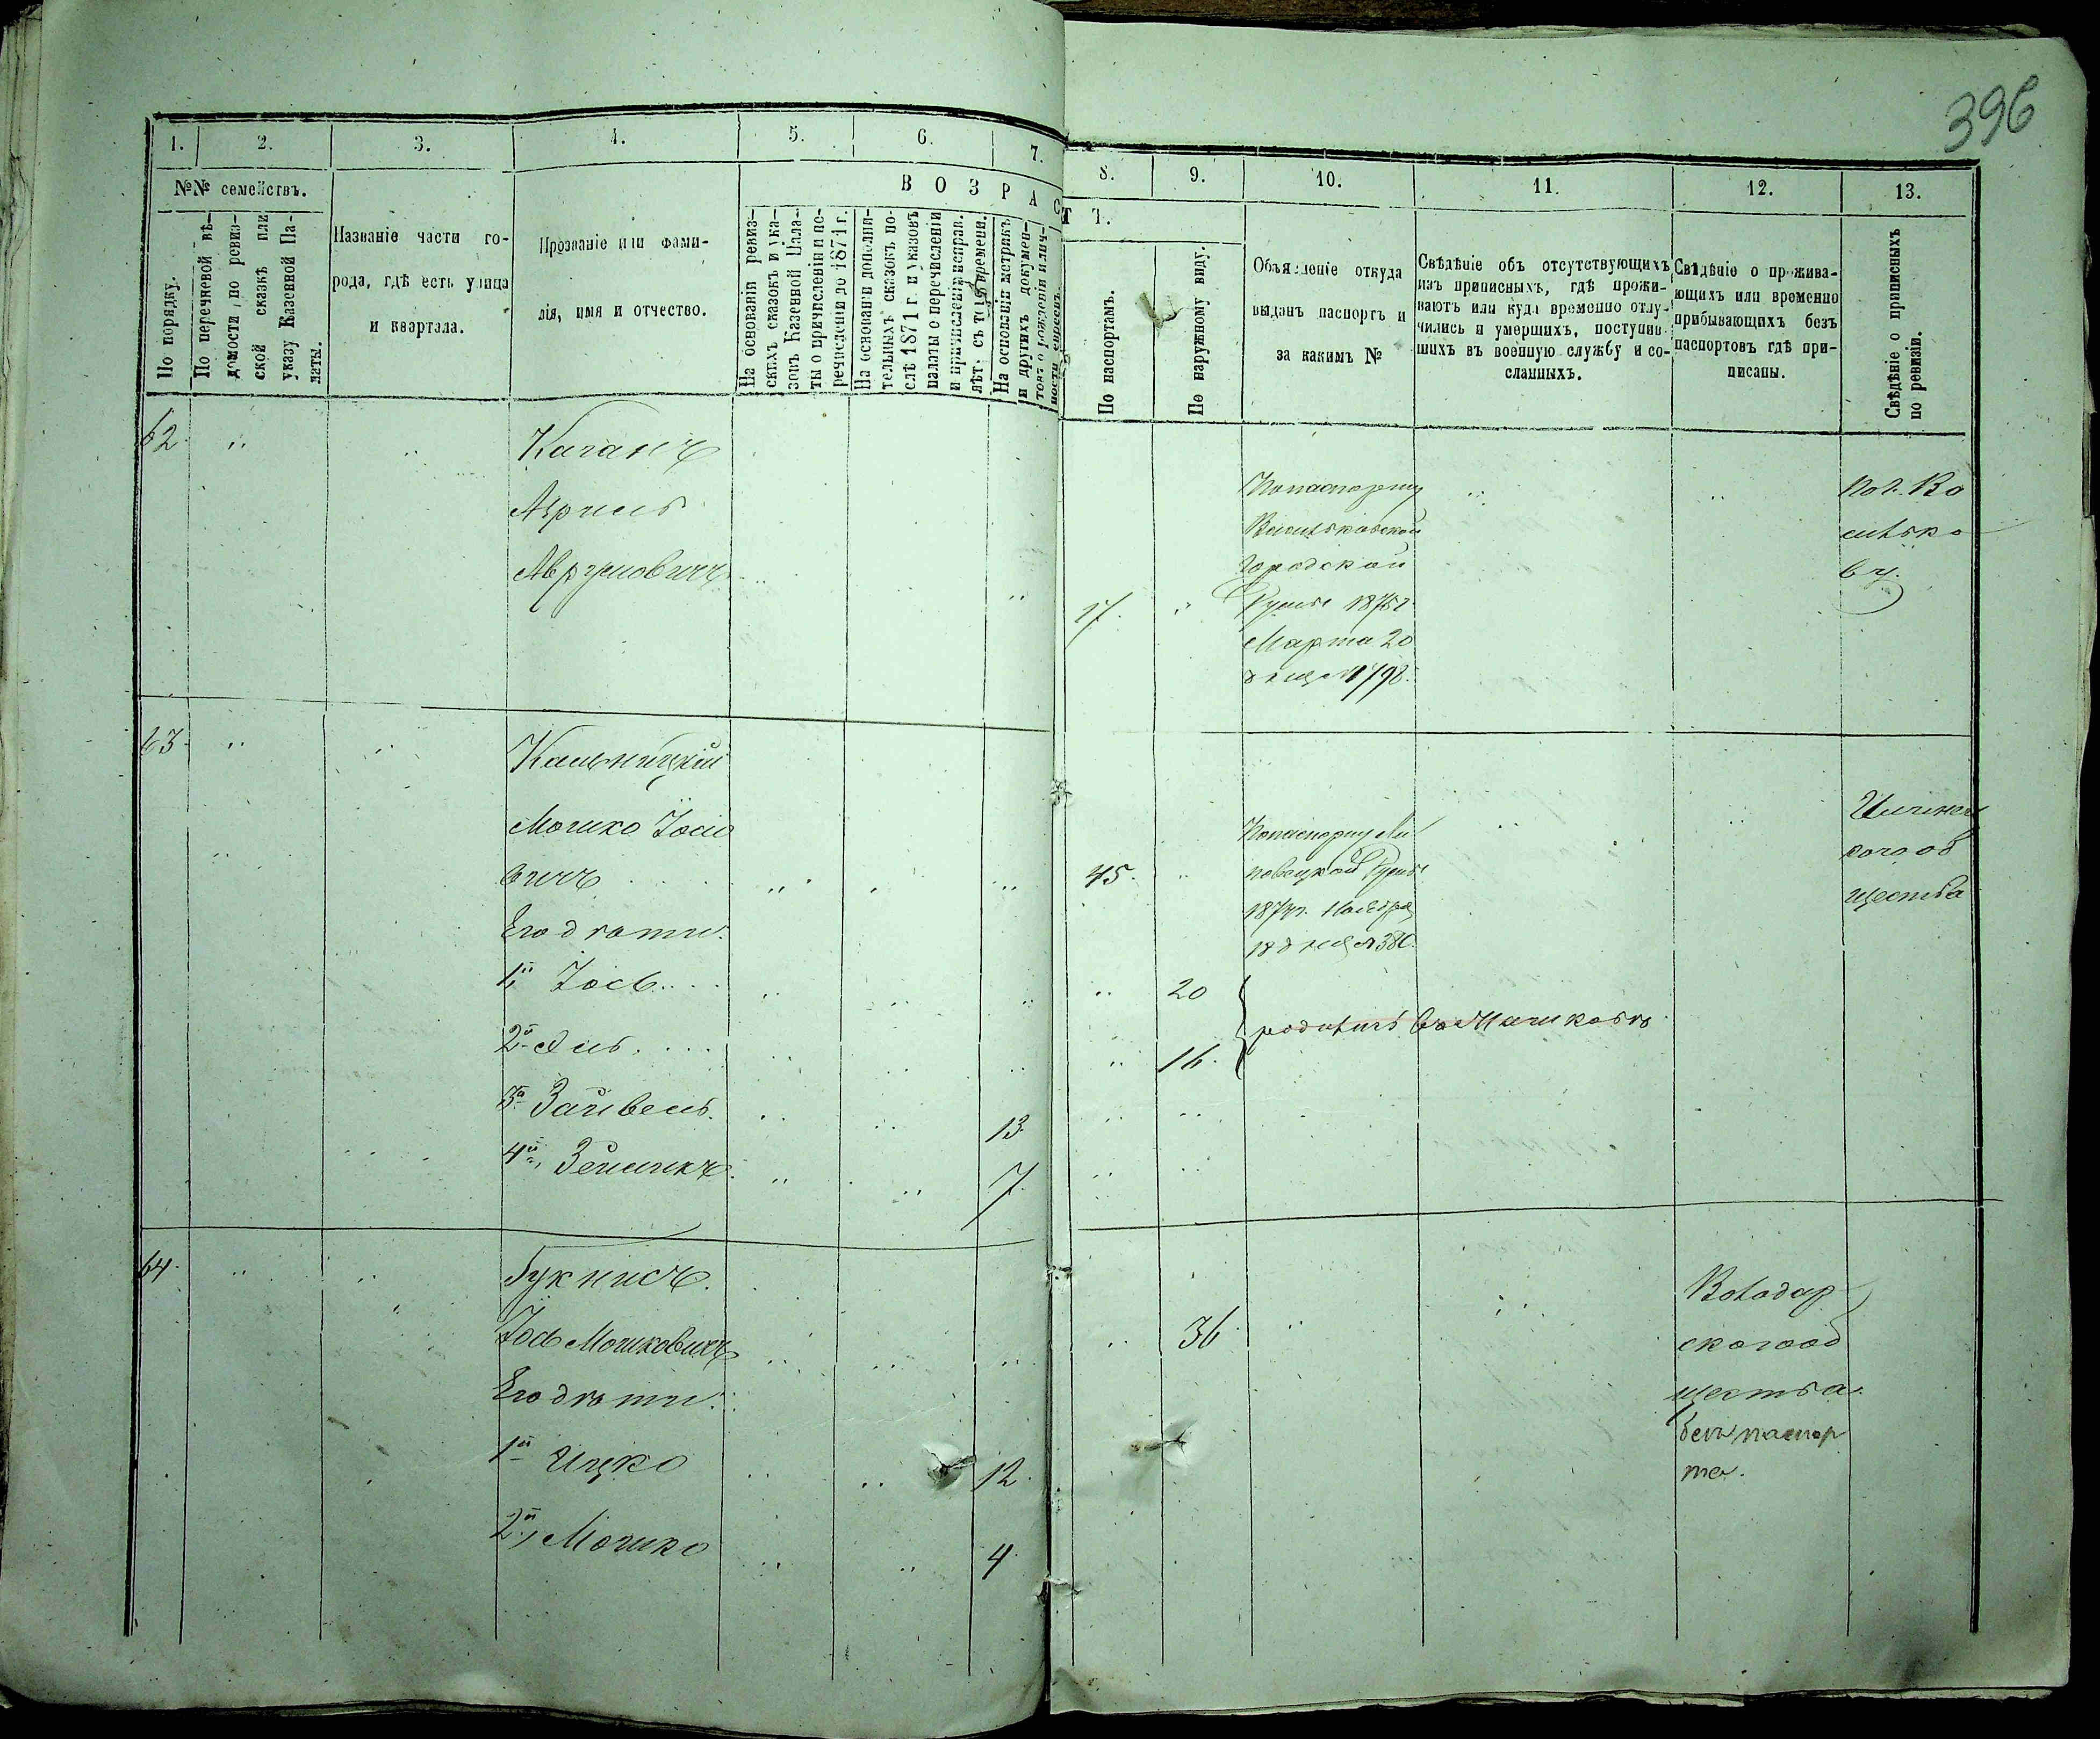 396
1.
2.
3.
4.
5.
6.
7.
8.
9.
10.
11.
12.
13.
№№ семействъ.
По порядку.
По перечневой вѣ-
домости, по ревиз-
ской сказкѣ или
указу Казенной Па-
латы.
Названіе части го-
рода, гдѣ есть улица
и квартала.
Прозваніе или фами-
лія, имя и отчество.
ВОЗРАСТ Т.
На основаніи ревиз-
скихъ сказокъ и ука-
зовъ Казенной Пала-
ты о причисленіи и пе-
речисленіи до 1871 г.
На основаніи дополни-
тельныхъ сказокъ по-
слѣ 1871 г. и указовъ
палаты о перечисленіи
и причисленіи исправ.
лѣт. съ того времени.
На основаніи метрикъ
и другихъ докумен-
товъ о рожденіи и лич-
ности евреевъ.
По паспортамъ.
По наружному виду.
Объясненіе откуда
выданъ паспортъ и
за какимъ №
Свѣдѣніе объ отсутствующихъ
изъ приписныхъ, гдѣ прожи-
ваютъ или куда временно отлу-
чились и умершихъ, поступив-
шихъ въ военную службу и со-
сланныхъ.
Свѣдѣніе о прожива-
ющихъ или временно
прибывающихъ безъ
паспортовъ гдѣ при-
писаны.
Свѣдѣніе о приписныхъ
по ревизіи.
62.
Каганъ
Аврумовичъ
17.
Попаспорту
Васильковской
городской
Думы 1875 г.
Марта 20
дня №
63.
Кальницкій
Мошко Іосіо
вичъ
Его дѣти:
1й Іось
2й
3й Зайвель.
4й Зельликъ
13
7
45.
20
16.
Попаспорту Ли
повецкой Думы
187
Ноября
18 дня № 380.
родились
Илинец
кого об
щества
64.
Букнисъ.
Іось Мошковичъ
Его дѣти:
1й Ицко
2й Мошко
12.
4.
36
Володар
скогооб
щества.
безъ паспор
та.